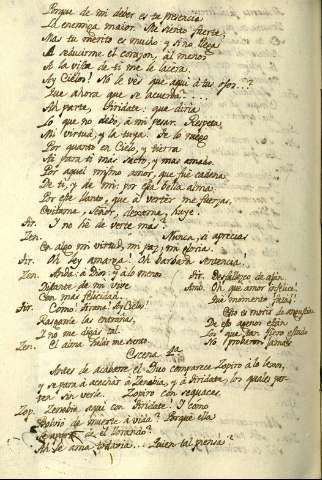 Porque de mi deber es tu presencia
La enemiga maior. Me siento fuerte;
Mas tu merito es mucho y si no llega
A reducirme el corazon, al menos
A la vista de ti me le
Ay Cielos! No le ves que aqui á tus ojos..?
Que ahora que se acuerda...
Ah parte, Tiridate: que diria
Lo que no debo, á mi pesar. Respeta
Mi virtud, y la tuya. Te lo ruego
Por quanto en Cielo, y tierra
Hay para ti mas sacro, y mas amado.
Por aquel mismo amor, que fue cadena
De ti, y de mi: por esa bella alma,
Por ese llanto, que á verter me fuerzas,
Evitame, Señor, dexame, huye.
Tir. Y no hé de verte mas?
Zen. Nunca, si aprecias
En algo mi virtud, mi paz, mi gloria.
Tir. Oh ley amarga! Oh barbara sentencia!
Zen. Anda: á Dios: y á lo menos
Distante de mi vive
Con mas felicidad.
Tir. Como! Tirana! Ay Cielos!
Rasgarme las entrañas,
Y no me digas tal.
Zen. El alma siento
Tir. Desfallezco de afán.
Amb. Oh que amor infelice!
Que momento fatal!
Esto es
De eso agenos estan
Los que tan fiero estado
No probaron jamas
Escena 2.da
Antes de acabarse el Duo comparece Zopiro á lo lexos,
y se para á acechar á Zenobia, y á Tiridate, los quales parten
sin verle. Zopiro con sequaces.
Zop. Zenobia aqui con Tiridate! Y como
de muerte á vida? Porque ella
se de el llorando?
Ah se ama todavia... Quien tal piensa?